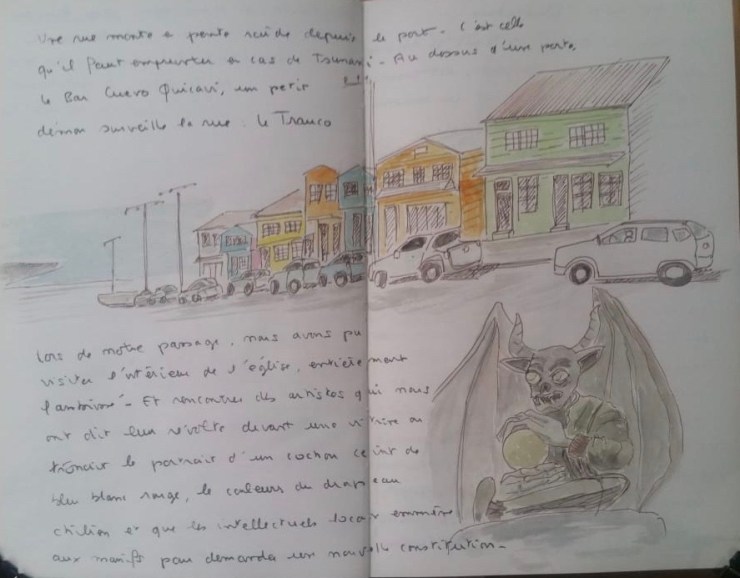 Une rue monte en pente raide depuis le port. C'est celle
qu'il faut emprunter en cas de Tsunami. Au dessus d'une porte,
le Bar Cuervo Quicavi, un petit
démon surveille la rue : le Trauco
Lors de notre passage, nous avons pu
visiter l'intérieur de l'église, entièrement
lambrissé. Et rencontrer des artistes qui nous
ont dit leur révolte devant une vitrine où
trônait le portrait d'un cochon ceint de
bleu blanc rouge, les couleurs du drapeau
chilien et que les intellectuels locaux emmène
aux manifs pour demander une nouvelle constitution.